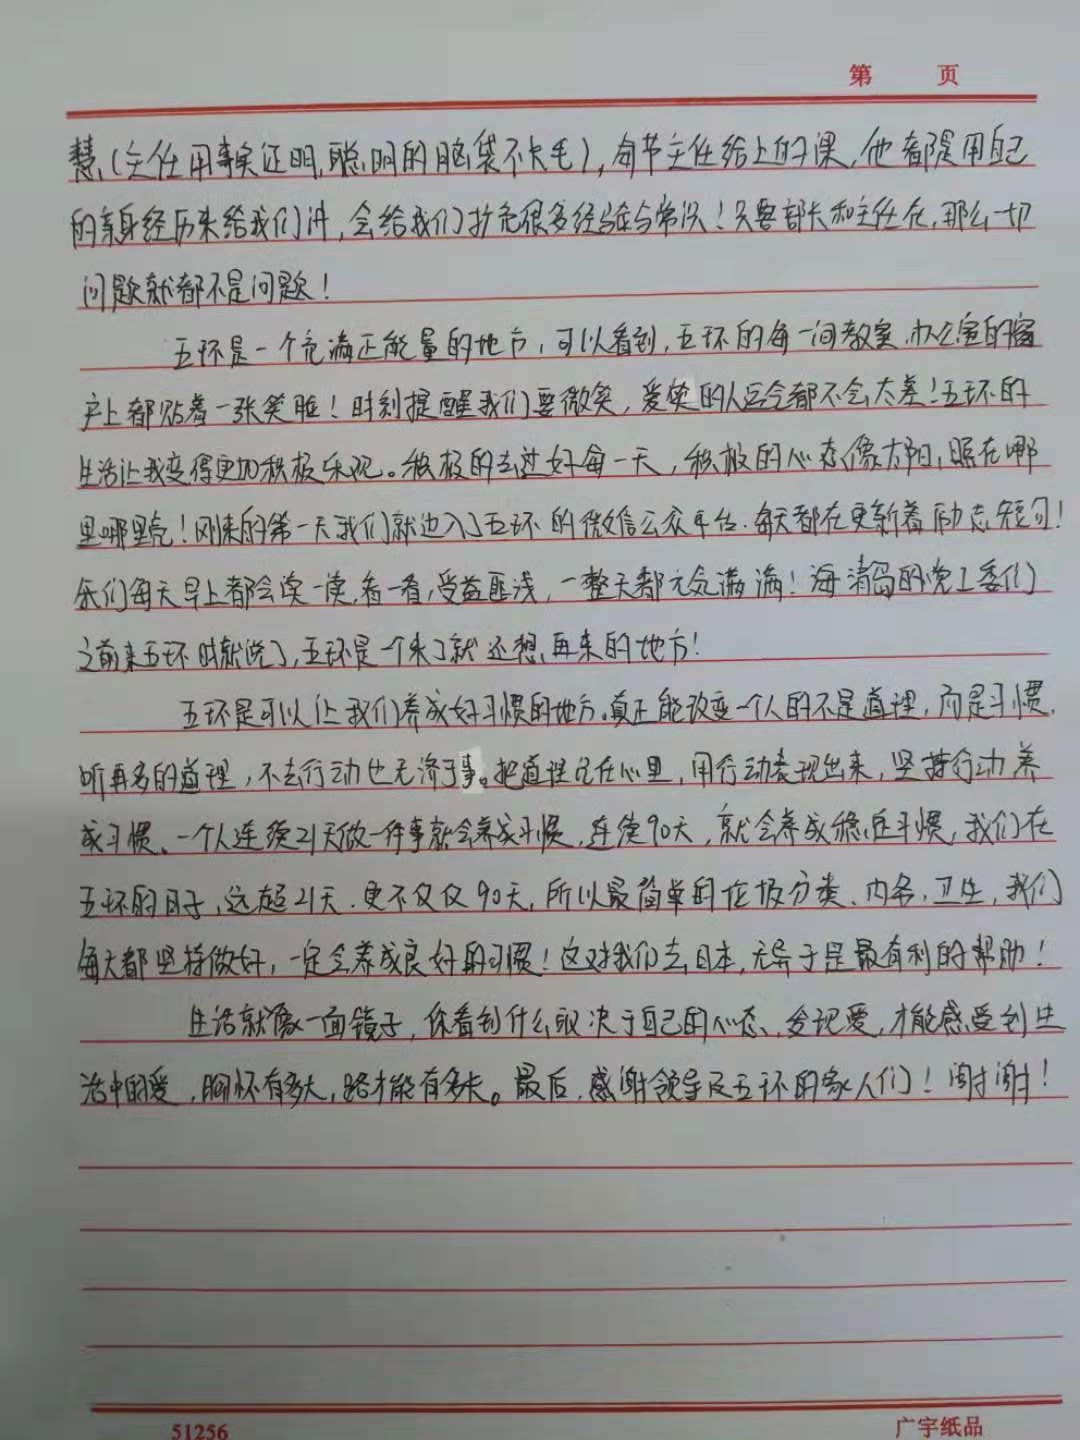 第 页
慧(主任用事实证明,聪明的脑袋不长毛),每节主任给上的课,他都是用自己
的亲身经历来给我们讲,会给我们扩充很多经验与常识!只要部长和主任在,那么一切
问题就都不是问题!
五环是一个充满正能量的地方,可以看到,五环的每一间教室、办公室的窗
户上都贴着一张笑脸!时刻提醒我们要微笑,爱笑的人运气都不会太差!五环的
生活让我变得更加积极乐观。积极的去过好每一天,积极的心态像太阳,照在哪
里哪里亮!刚来的第一天我们就进入了五环的微信公众平台.每天都在更新着励志短句!
我们每天早上都会读一读,看一看,受益匪浅,一整天都元气满满!海清岛的党工委们
之前来五环时就说了,五环是一个来了就还想再来的地方!
五环是可以让我们养成好习惯的地方.真正能改变一个人的不是道理,而是习惯,
听再多的道理,不去行动也无济于事。把道理记在心里,用行动表现出来,坚持行动养
成习惯、一个人连续21天做一件事就会养成习惯,连续90天,就会养成稳定习惯,我们在
五环的日子,远超21天.更不仅仅90天,所以最简单的垃圾分类、内务、卫生,我们
每天都坚持做好,一定会养成良好的习惯!这对我们去日本,无异于是最有利的帮助!
生活就像一面镜子,你看到什么取决于自己的心态、发现爱,才能感受到生
活中的爱,胸怀有多大,路才能有多长。最后,感谢领导及五环的家人们!谢谢!
51256
广宇纸品